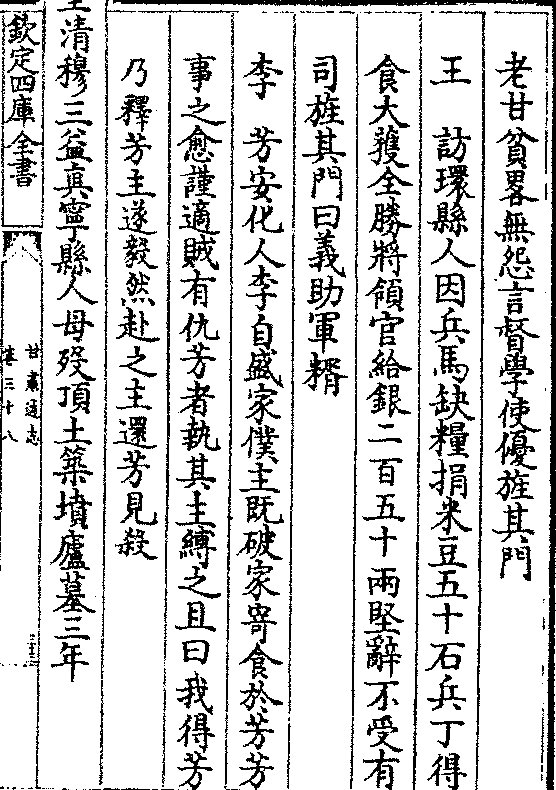 老甘貧畧無怨言督學使優旌其門
王　訪環縣人因兵馬缺糧捐米豆五十石兵丁得
食大獲全勝將領官給銀二百五十兩堅辭不受有
司旌其門曰義助軍糈
李　芳安化人李自盛家僕主既破家寄食於芳芳
事之愈謹適賊有仇芳者執其主縛之且曰我得芳
乃釋芳主遂毅然赴之主還芳見殺
清穆三益真寧縣人母歿頂土築墳廬墓三年
欽定四庫全書
甘肅通志
卷三十八